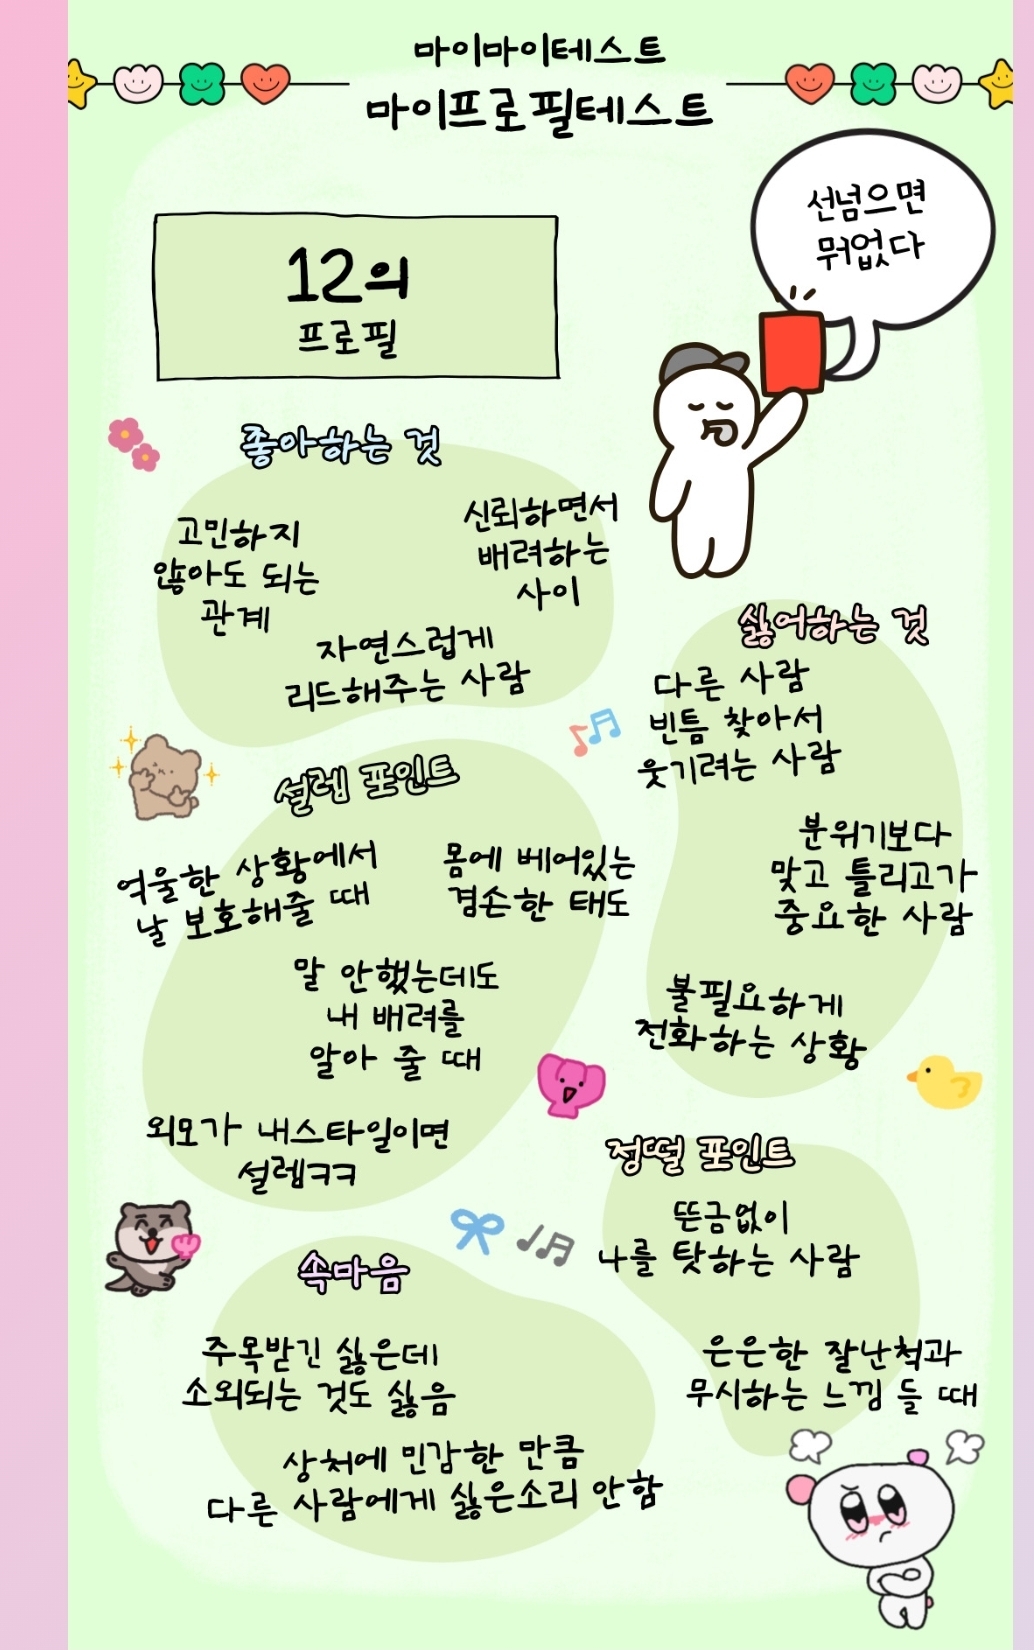 마이마이테스트
마이프로필테스트
선넘으면
뭐없다
12의
프로필
좋아하는 것
고민하지
않아도 되는
관계
신뢰하면서
배려하는
사이
자연스럽게
리드해주는 사람
싫어하는 것
다른 사람
빈틈 찾아서
웃기려는 사람
분위기보다
맞고 틀리고가
중요한 사람
불필요하게
전화하는 상황
설렘 포인트
억울한 상황에서
날 보호해줄 때
몸에 베어있는
겸손한 태도
말 안했는데도
내 배려를
알아 줄 때
외모가 내스타일이면
설렘ㅋㅋ
정떨 포인트
뜬금없이
나를 탓하는 사람
은은한 잘난척과
무시하는 느낌 들 때
속마음
주목받긴 싫은데
소외되는 것도 싫음
상처에 민감한 만큼
다른 사람에게 싫은소리 안함